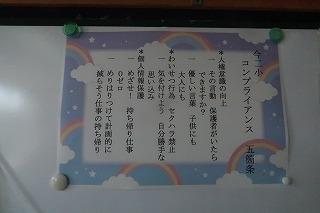 今二小
コンプライアンス 五箇条
＊人権意識の向上
一 その言動 保護者がいたら
できますか？
一 優しい言葉 子供にも
大人にも
＊わいせつ行為 セクハラ禁止
一 気を付けよう 自分勝手な
思い込み
＊個人情報保護
一 めざせ！ 持ち帰り仕事
０ゼロ
一 めりはりつけて計画的に
減らそう仕事の持ち帰り